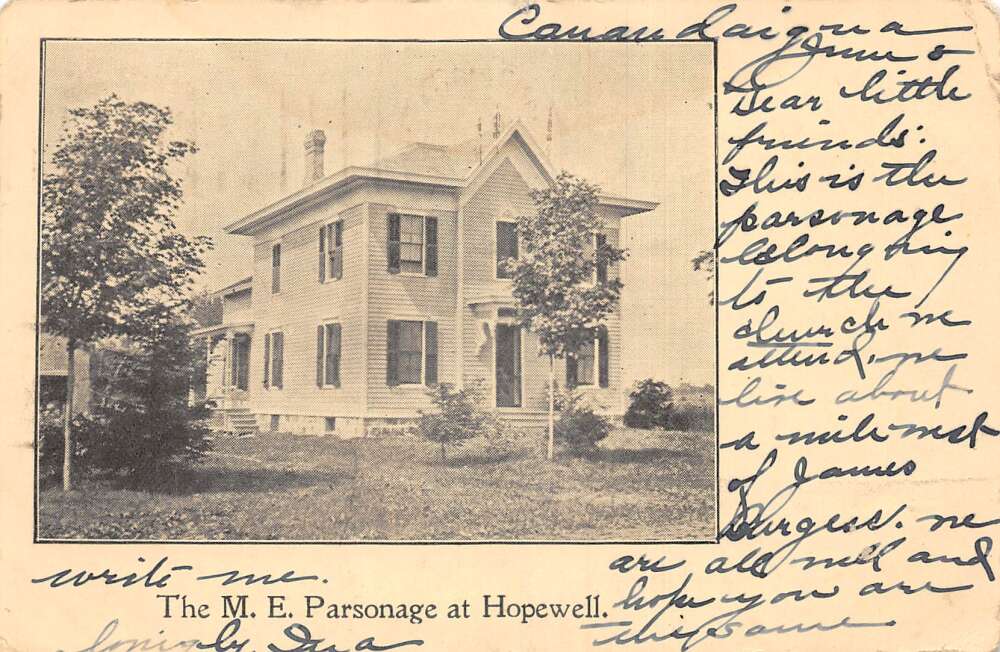 Canandaigua
June 8
Dear little
friends:
This is the
parsonage
belonging
to the
church we
attend, we
live about
a mile west
of James
Burgess. we
are all well and
hope you are
the same
write me.
The M. E. Parsonage at Hopewell.
Lovingly, Ira